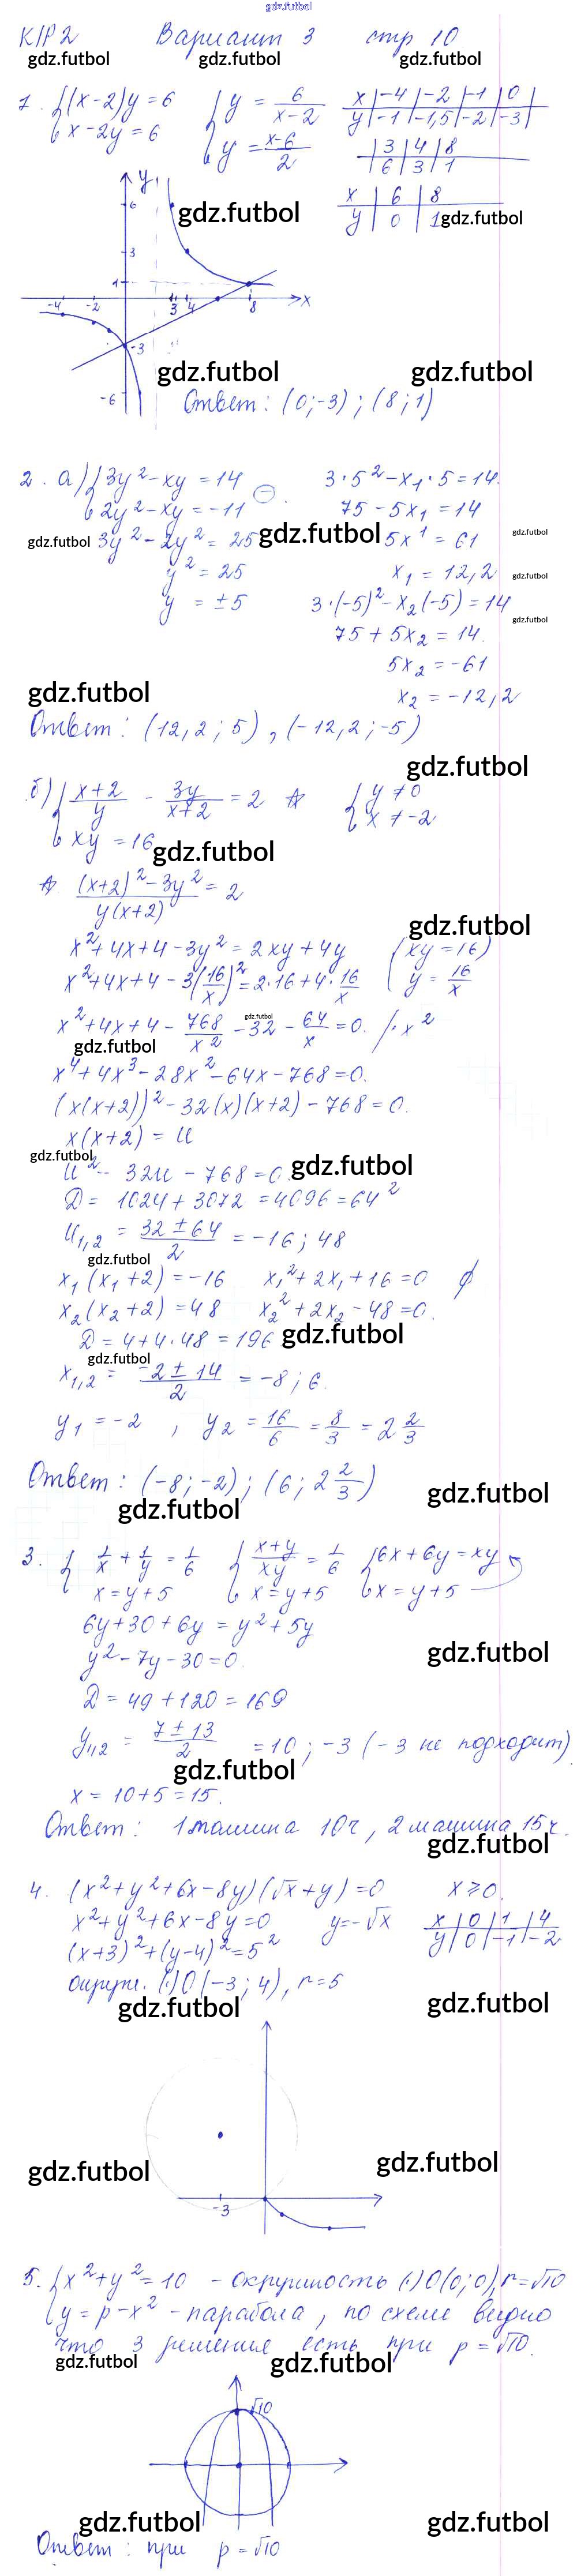 gdz.futbol
К/Р 2 Вариант 3 стр 10
gdz.futbol gdz.futbol gdz.futbol
1. { (x-2)y = 6 { y = 6/(x-2) x | -4 | -2 | -1 | 0
x - 2y = 6 y = (x-6)/2 y | -1 | -1,5 | -2 | -3 |
| 3 | 4 | 8
| 6 | 3 | 1
x | 6 | 8
y | 0 | 1
gdz.futbol gdz.futbol
y
6
3
1
-4 -2 3 4 8 x
-3
-6
gdz.futbol gdz.futbol
Ответ: (0;-3); (8;1)
2. а) { 3y² - xy = 14 (-) 3·5² - x₁·5 = 14.
2y² - xy = -11 75 - 5x₁ = 14
gdz.futbol 3y² - 2y² = 25 gdz.futbol 5x¹ = 61 gdz.futbol
y² = 25 x₁ = 12,2 gdz.futbol
y = ±5 3·(-5)² - x₂(-5) = 14
gdz.futbol
75 + 5x₂ = 14.
5x₂ = -61
gdz.futbol x₂ = -12,2
Ответ: (12,2; 5), (-12,2; -5)
gdz.futbol
б) { (x+2)/y - 3y/(x+2) = 2 ☆ { y ≠ 0
xy = 16 x ≠ -2
gdz.futbol
☆ ((x+2)² - 3y²)/(y(x+2)) = 2
gdz.futbol
x² + 4x + 4 - 3y² = 2xy + 4y (xy = 16)
x² + 4x + 4 - 3(16/x)² = 2·16 + 4·16/x ( y = 16/x
gdz.futbol
x² + 4x + 4 - 768/x² - 32 - 64/x = 0. /·x²
gdz.futbol
x⁴ + 4x³ - 28x² - 64x - 768 = 0.
(x(x+2))² - 32(x)(x+2) - 768 = 0.
x(x+2) = u
gdz.futbol
u² - 32u - 768 = 0 gdz.futbol
D = 1024 + 3072 = 4096 = 64²
u₁,₂ = (32 ± 64)/2 = -16; 48
gdz.futbol
x₁(x₁+2) = -16 x₁² + 2x₁ + 16 = 0 ∅
x₂(x₂+2) = 48 x₂² + 2x₂ - 48 = 0.
D = 4 + 4·48 = 196 gdz.futbol
gdz.futbol
x₁,₂ = (-2 ± 14)/2 = -8; 6.
y₁ = -2, y₂ = 16/6 = 8/3 = 2 2/3
Ответ: (-8; -2); (6; 2 2/3)
gdz.futbol gdz.futbol
3. { 1/x + 1/y = 1/6 { (x+y)/xy = 1/6 { 6x + 6y = xy
x = y + 5 x = y + 5 x = y + 5
6y + 30 + 6y = y² + 5y
y² - 7y - 30 = 0. gdz.futbol
D = 49 + 120 = 169
y₁,₂ = (7 ± 13)/2 = 10; -3 (-3 не подходит)
gdz.futbol
x = 10 + 5 = 15.
Ответ: 1 машина 10ч, 2 машина 15ч.
gdz.futbol
4. (x² + y² + 6x - 8y)(√x + y) = 0 x ⩾ 0.
x² + y² + 6x - 8y = 0 y = -√x x | 0 | 1 | 4
(x+3)² + (y-4)² = 5² y | 0 | -1 | -2
окружн. (·) O(-3; 4), r = 5
gdz.futbol gdz.futbol
gdz.futbol gdz.futbol
-3
5. { x² + y² = 10 - окружность (·) O(0; 0), r = √10
y = p - x² - парабола, по схеме видно
что 3 решения есть при p = √10.
gdz.futbol gdz.futbol
√10
gdz.futbol gdz.futbol
Ответ: при p = √10